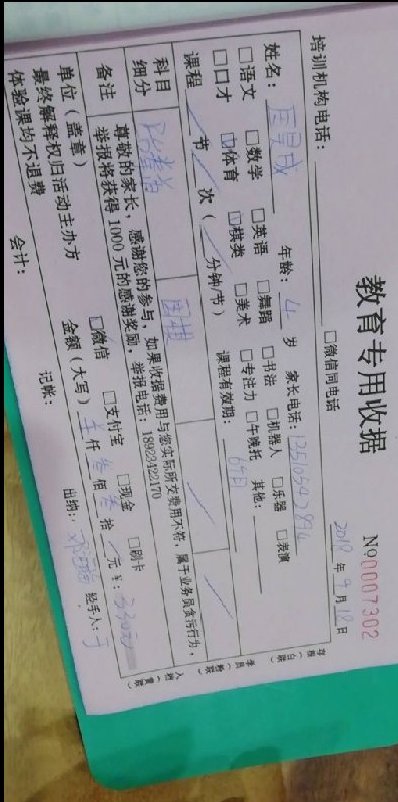 教育专用收据
№0007302
培训机构电话：
□微信同电话
2018年9月18日
姓名： 年龄：4岁 家长电话：
□语文 □数学 □英语 □舞蹈 □书法 □机器人 □乐器 □表演
□口才 ☑体育 ☑棋类 □美术 □专注力 □午晚托 其他：
课程 节 次（ 分钟/节） 课程有效期：
科目
细分
围棋
尊敬的家长，感谢您的参与，如果收据费用与您实际所交费用不符，属于业务员贪污行为，
备注 举报将获得1000元的感谢奖励，举报电话：18922422170
☑微信 □支付宝 □现金 □刷卡
单位（盖章） 金额（大写） 仟 佰 拾 元 ￥：
最终解释权归活动主办方
体验课均不退费
会计： 记帐： 出纳： 经手人：
存根（白联）
学员（粉联）
入档（黄联）